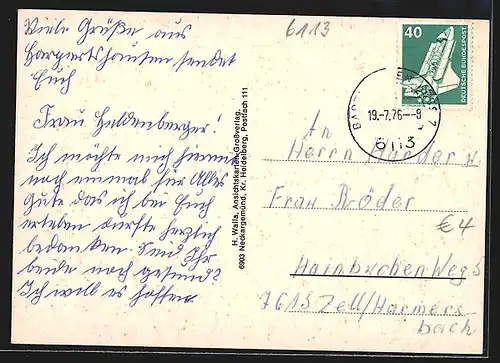 Viele Grüße aus
Harpertshausen sendet
Euch
Frau Heldenberger!
Ich möchte mich hiermit
noch einmal für Alles
Gute das ich bei Euch
erleben durfte herzlich
bedanken. Seid Ihr
beide noch gesund?
Ich will es hoffen
6113
40
DEUTSCHE BUNDESPOST
19.-7.76-8
6113
H. Walla, Ansichtskarten-Großverlag,
6903 Neckargemünd, Kr. Heidelberg, Postfach 111
An
Herrn Röder u.
Frau Röder
€ 4
Hainbuchen Weg 5
7615 Zell/Harmers
bach